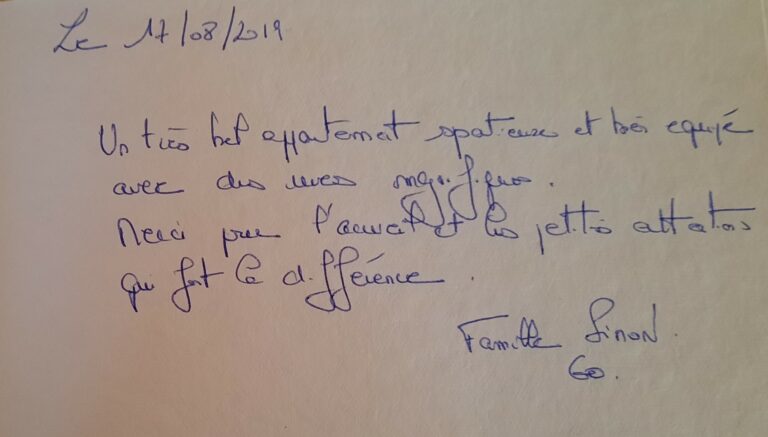 Le 17/08/2019
Un très bel appartement spatieux et très equipé
avec des vues magnifiques.
Merci pour l'accueil et les petites attentions
qui font la différence.
Famille Simon.
60.